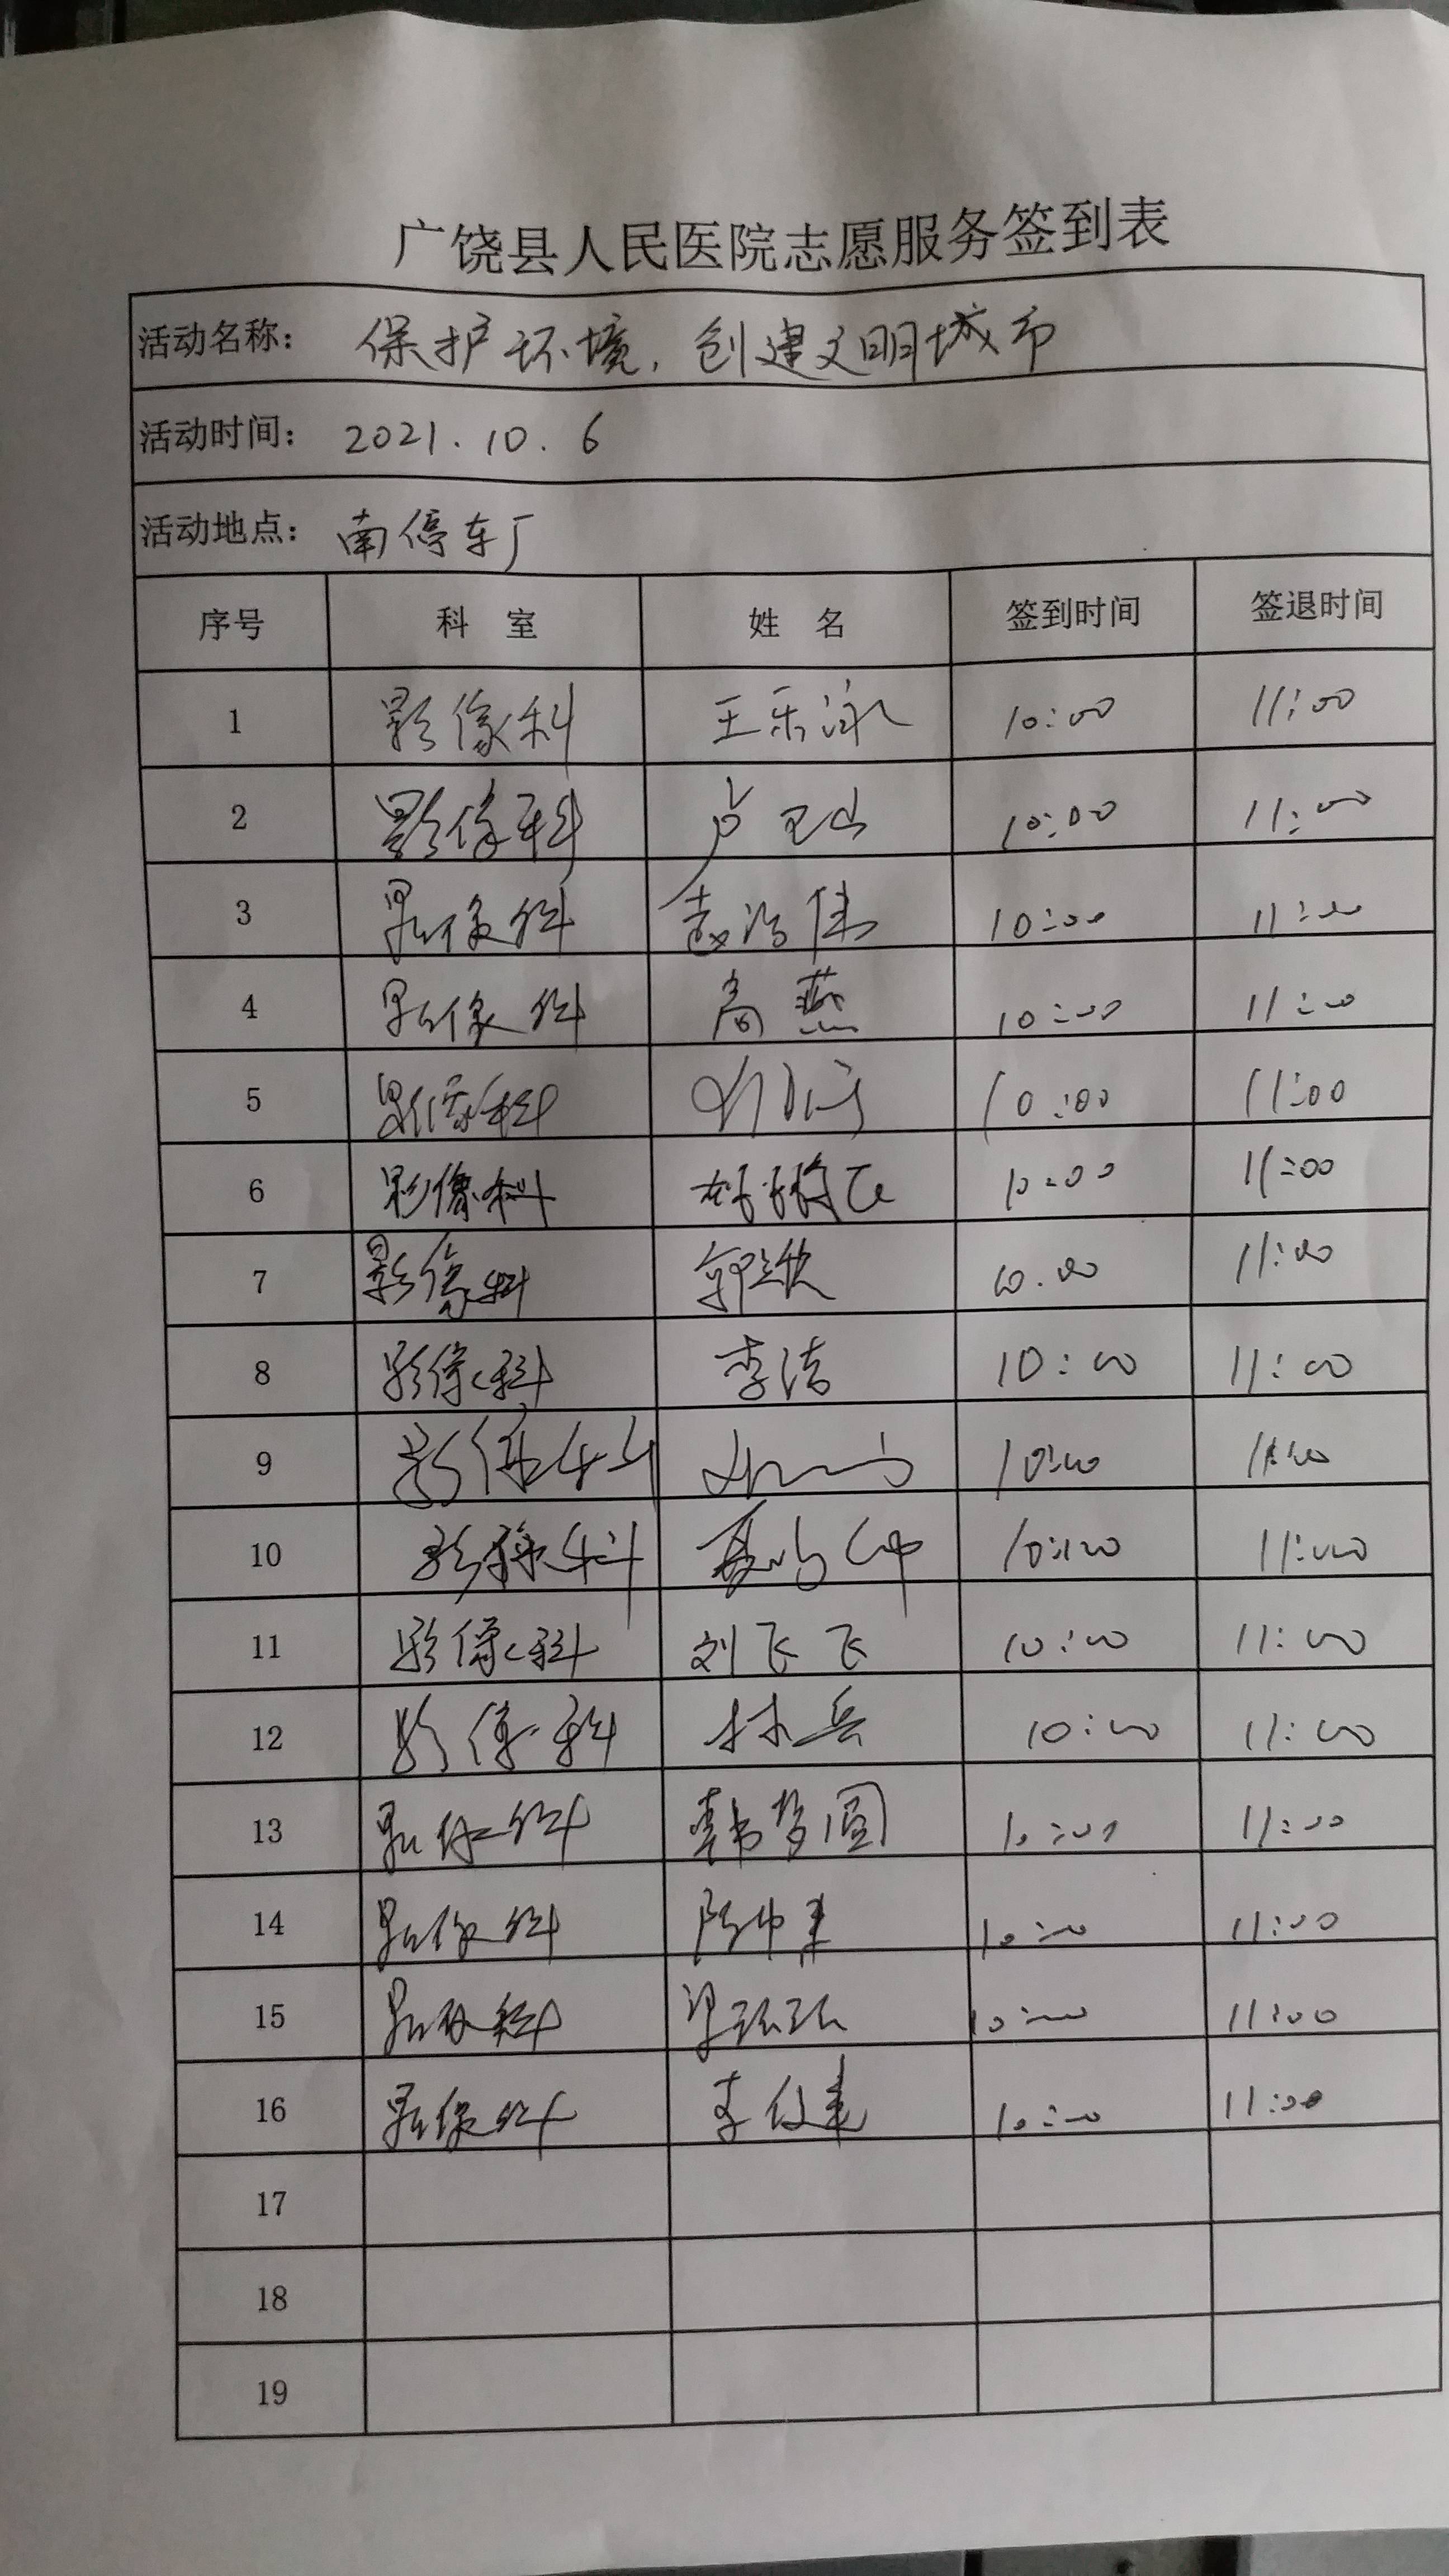 广饶县人民医院志愿服务签到表
活动名称： 保护环境，创建文明城市
活动时间： 2021.10.6
活动地点： 南停车厂
序号 科 室 姓 名 签到时间 签退时间
1 影像科 王乐泳 10:00 11:00
2 影像科 卢卫山 10:00 11:00
3 影像科 10:00 11:00
4 影像科 高燕 10:00 11:00
5 影像科 10:00 11:00
6 影像科 10:00 11:00
7 影像科 郭欣 10:00 11:00
8 影像科 李洁 10:00 11:00
9 影像科 10:00 11:00
10 影像科 10:00 11:00
11 影像科 刘飞飞 10:00 11:00
12 影像科 林兵 10:00 11:00
13 影像科 韩梦圆 10:00 11:00
14 影像科 10:00 11:00
15 影像科 10:00 11:00
16 影像科 10:00 11:00
17
18
19